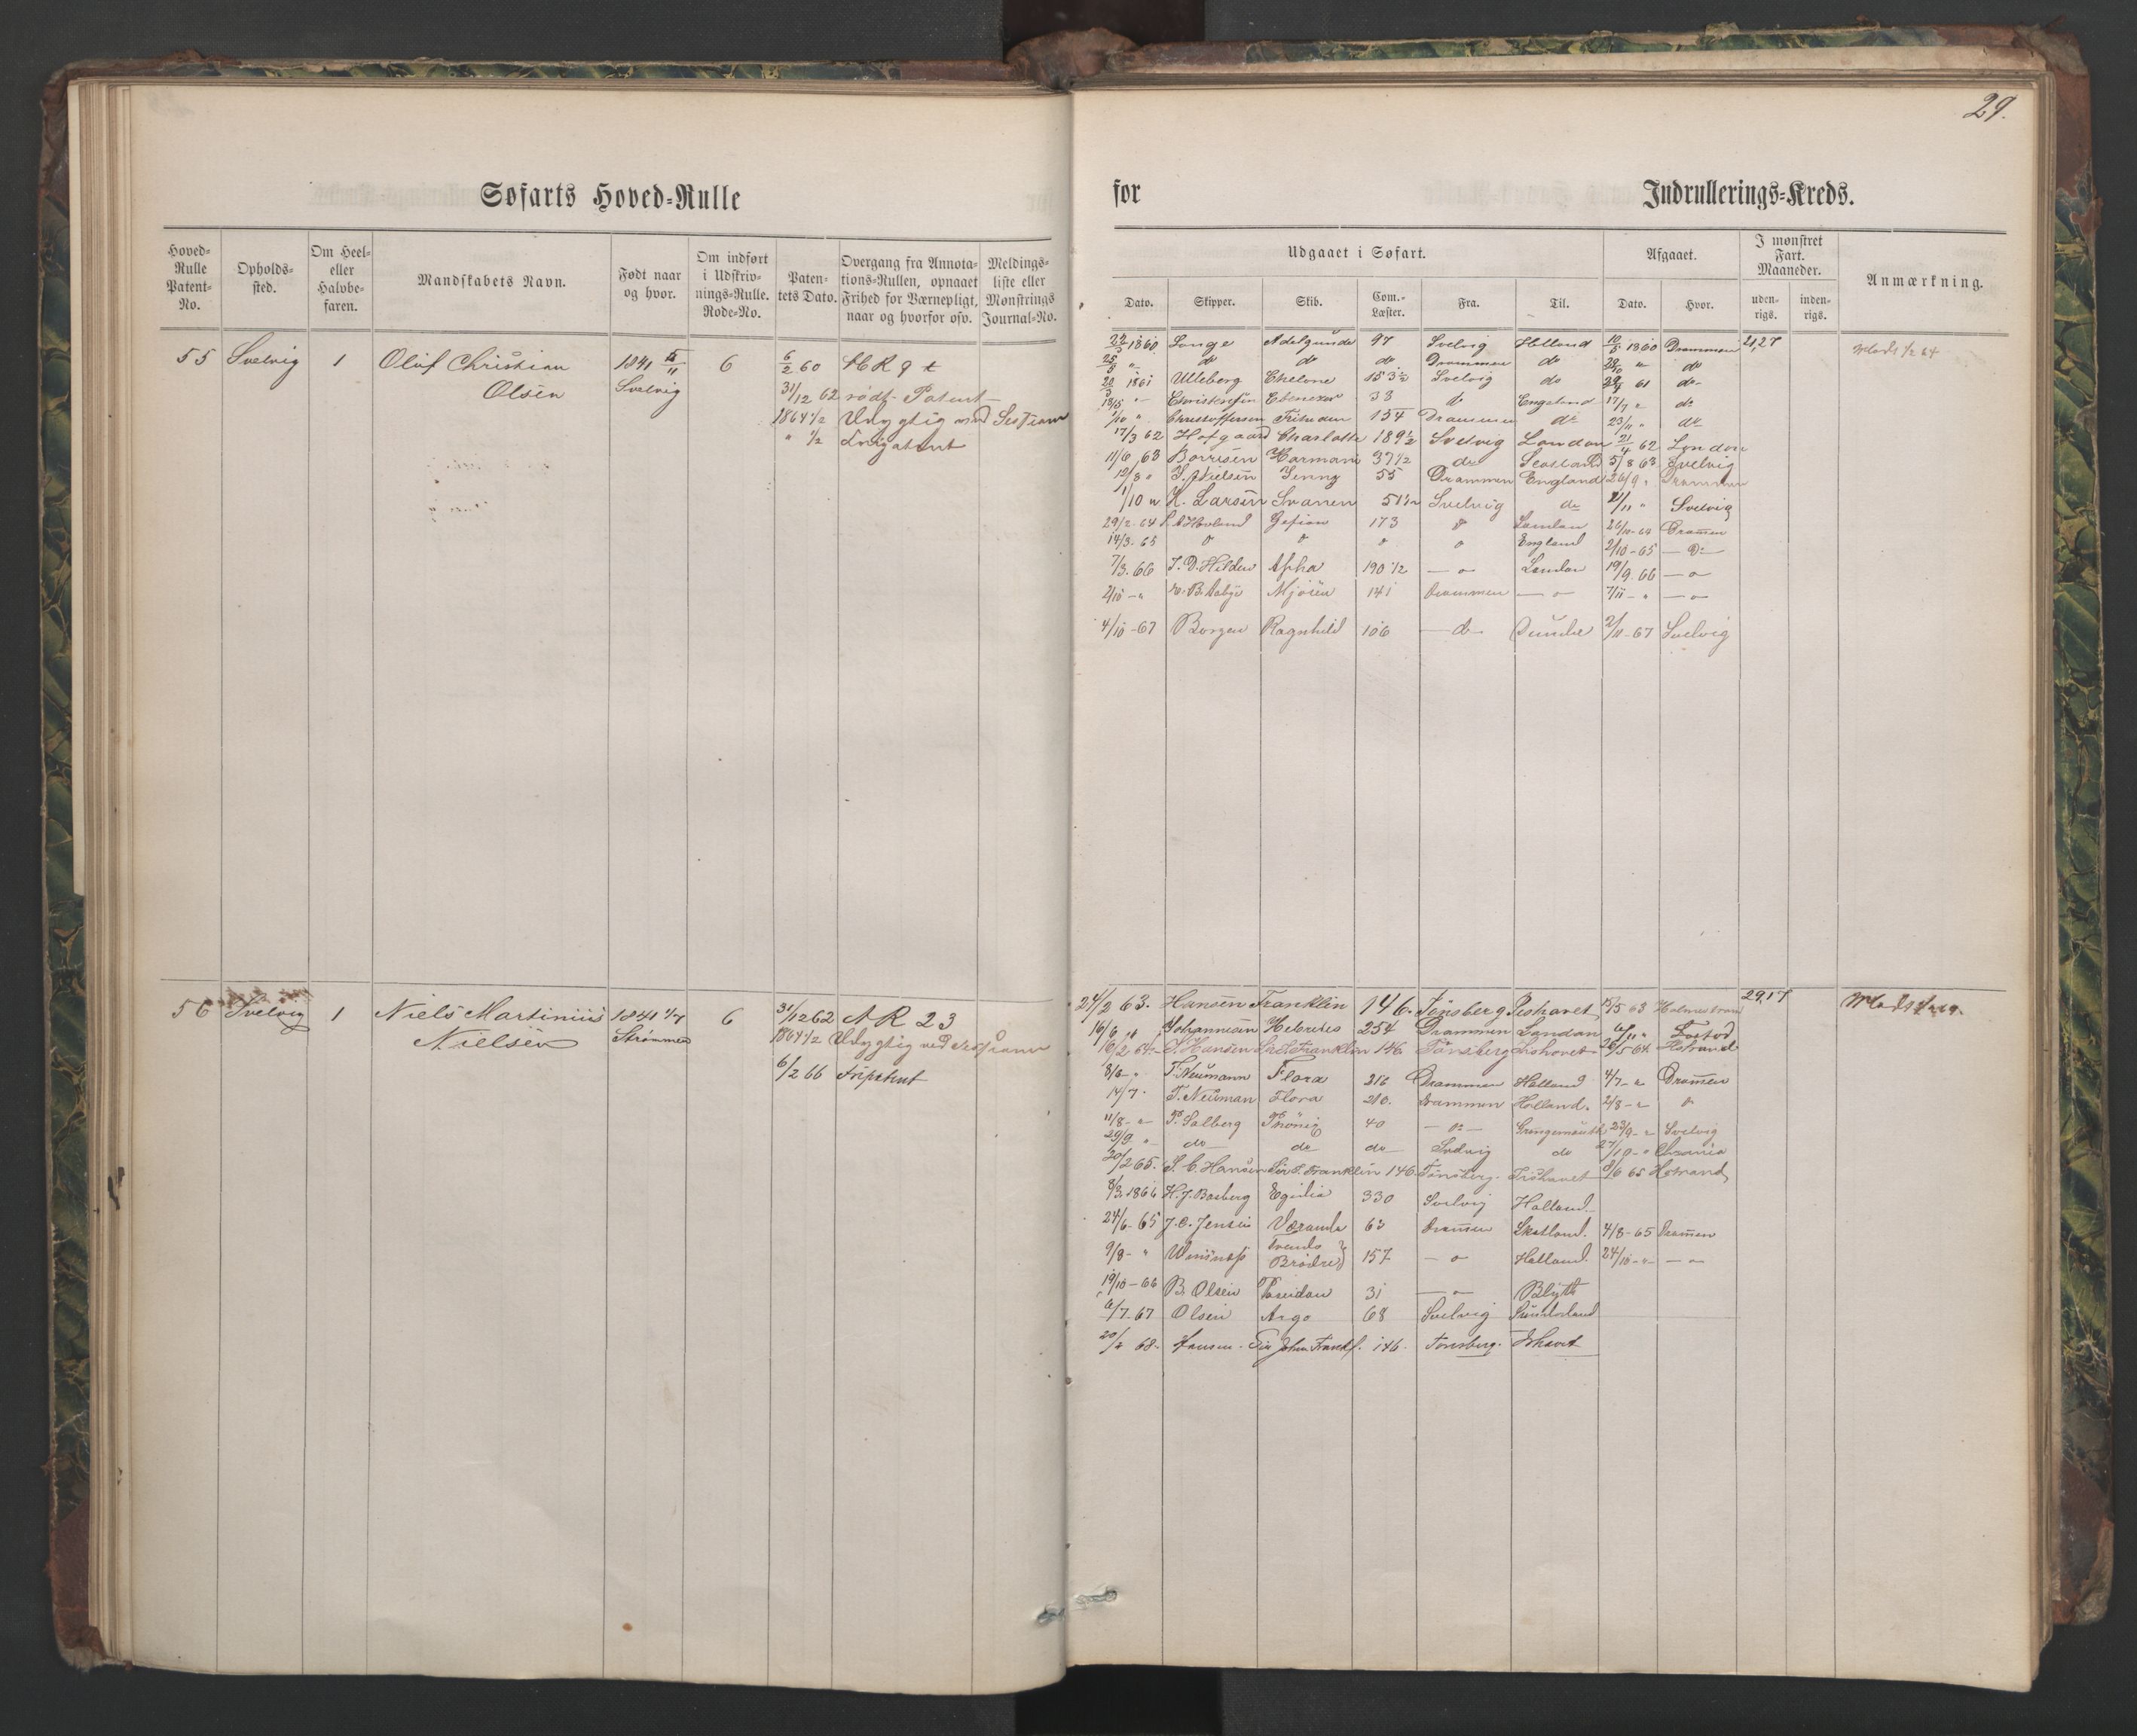 29.
Søfarts Hoved-Rulle
for Indrullerings-Kreds.
Hoved-Rulle Patent-No.
Opholds-sted.
Om Heel- eller Halvbe-faren.
Mandskabets Navn.
Født naar og hvor.
Om indført i Udskriv-nings-Rulle. Rode-No.
Paten-tets Dato.
Overgang fra Annota-tions-Rullen, opnaaet Frihed for Værnepligt, naar og hvorfor osv.
Meldings-liste eller Mønstrings Journal-No.
Udgaaet i Søfart.
Afgaaet.
I mønstret Fart. Maaneder.
Anmærkning.
Dato. Skipper. Skib. Com.-Læster. Fra. Til. Dato. Hvor. uden-rigs. inden-rigs.
55 Svelvig 1 Oluf Christian Olsen 1841 Svelvig 6
6/2 60 HR 9
31/12 62 rødt Patent
1864 1/2 Udygtig ved Sessionen
" 1/2 Fripatent
22/3 1860 Lange Adelgunde 97 Svelvig Holland 1860 Drammen 21,27
do do do Drammen do " do
1861 Ulleberg Chelone 153 1/2 Svelvig do 61 do
18/5 " Christensen Ebenezer 33 do England 17/7 " do
" Christoffersen 154 Drammen do 23/11 " do
17/3 62 Hofgaard Charlotte 189 1/2 Svelvig London 21/4 62 London
11/6 63 Borresen Harmoni 37 1/2 do Scotland 5/8 63 Svelvig
12/8 " J. Nielsen Jenny 55 Drammen England 26/9 " Drammen
1/10 " H. Larsen Svanen 51 1/2 Svelvig do 21/11 " Svelvig
29/2-64 Gefion 173 London 26/10-64 Drammen
14/3-65 England 2/10-65 Do
7/3.66 J. D. Hilden Alpha 190 1/2 London 19/9.66
2/10 - " Mjøsen 141 Drammen 7/11 - "
4/10-67 Borgen Ragnhild 106 do Dundee 2/11-67 Svelvig
56 Svelvig 1 Niels Martinius Nielsen 1841 1/7 Strømmen 6
31/12 62 AR 23
1864 1/2 Udygtig ved Sessionen
6/2 66 Fripatent
24/2 63. Hansen Franklin 146. Tønsberg Ishavet 15/5 63 Holmestrand 29,17
16/6 " Johannesen Hebrides 254 Drammen London 6/11 "
16/2 64 S. Hansen Sir J. Franklin 146 Tønsberg Ishavet 26/5 64 Hstrand
8/6 - " F. Neumann Flora 216 Drammen Holland 4/7 - " Drammen
14/7 - F. Neuman Flora 216. Drammen Holland. 2/8 - "
11/8 - " P. Salberg 40 Do 23/9 - " Svelvig
29/9 " do do do Svelvig do 27/10 - " Chrania
20/2 65. S. C. Hansen Sir J. Franklin 146 Tønsberg. Ishavet 8/6 65 Hstrand
8/3 1866 H. J. Basberg Egidia 330 Svelvig Holland
24/6-65 J. C. Jensen 63 Drammen Skotland. 4/8-65 Drammen
9/8 - " Brødre 157 Holland. 24/10 - "
19/10-66 B. Olsen Poseidon 31 Blyth
6/7-67 Olsen Argo 68 Svelvig Sunderland
20/2 68 Hansen Sir John Frankl. 146. Tonsberg. Ishavet